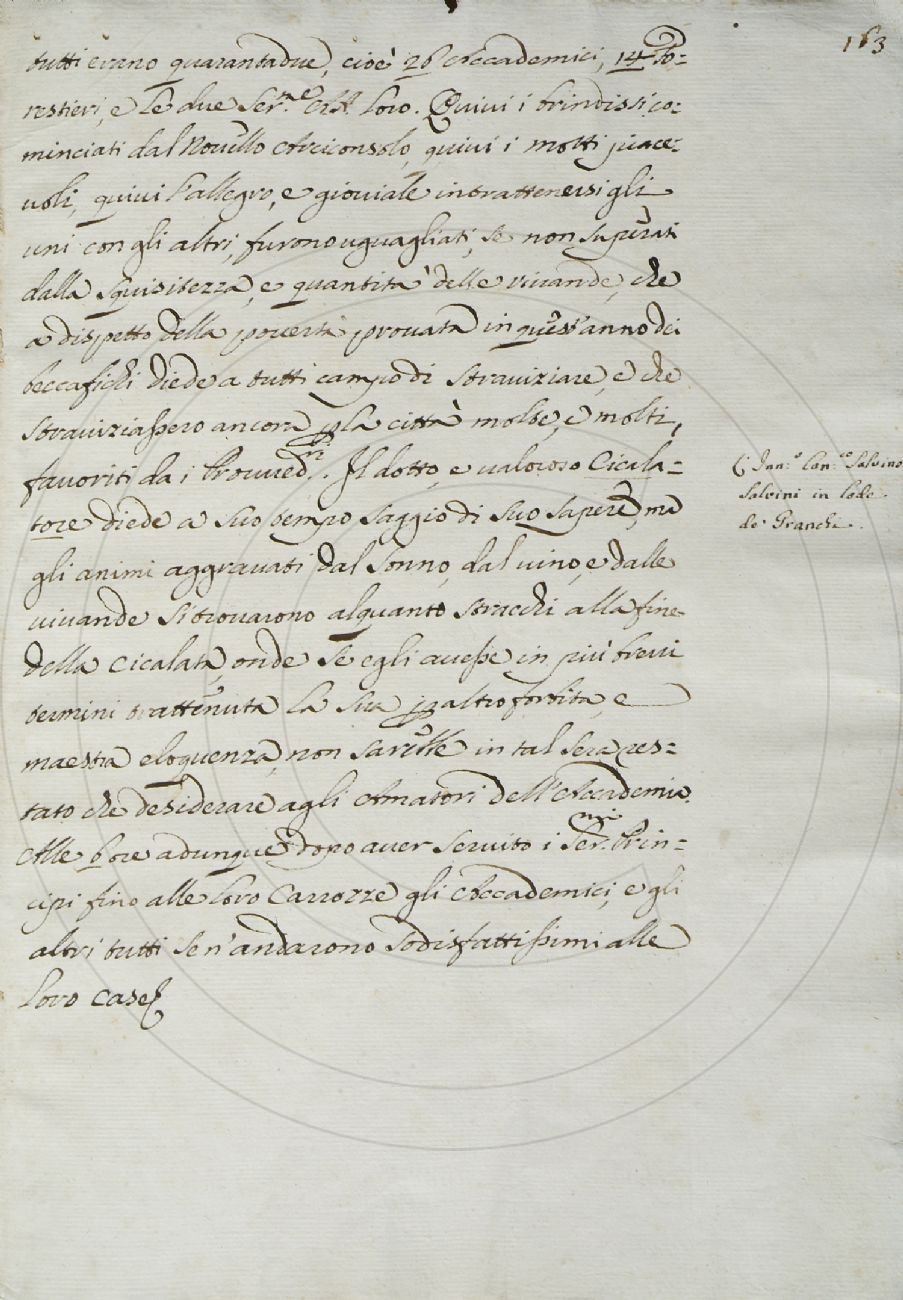 163
tutti erano quarantadue, cioè 26 Accademici, 14 Fo=
restieri, e le due Ser.me AA. Loro. Quivi i brindissi co=
minciati dal Novello Arciconsolo, quivi i motti piace=
voli, quivi l'allegro, e gioviale intrattenersi gli
uni con gli altri, furono uguagliati, se non superati
dalla squisitezza, e quantità delle vivande, che
a dispetto della povertà provata in quest'anno dei
beccafichi diede a tutti campo di straviziare, e che
straviziassero ancora p la città molte, e molti,
favoriti da i Provved.ri. Il dotto, e valoroso Cicala=
tore diede a suo tempo saggio di suo sapere, ma
gli animi aggravati dal sonno, dal vino, e dalle
vivande si trovarono alquanto stracchi alla fine
della Cicalata, onde se egli avesse in più brevi
termini trattenuta la sua p altro forbita, e
maestra eloquenza, non sarebbe in tal sera res=
tato che desiderare agli Amatori dell'Accademia.
Alle 6 ore adunque dopo aver servito i Ser.mi Prin=
cipi fino alle loro Carrozze gli Accademici, e gli
altri tutti se n'andarono sodisfattissimi alle
loro case
Can.co Salvino
Salvini in lode
de' Granchi.